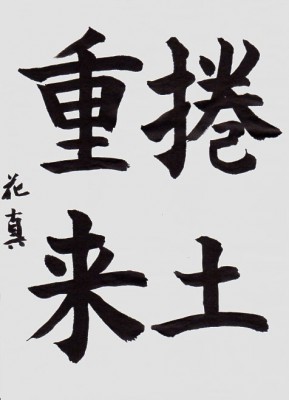 捲土
重来
花真